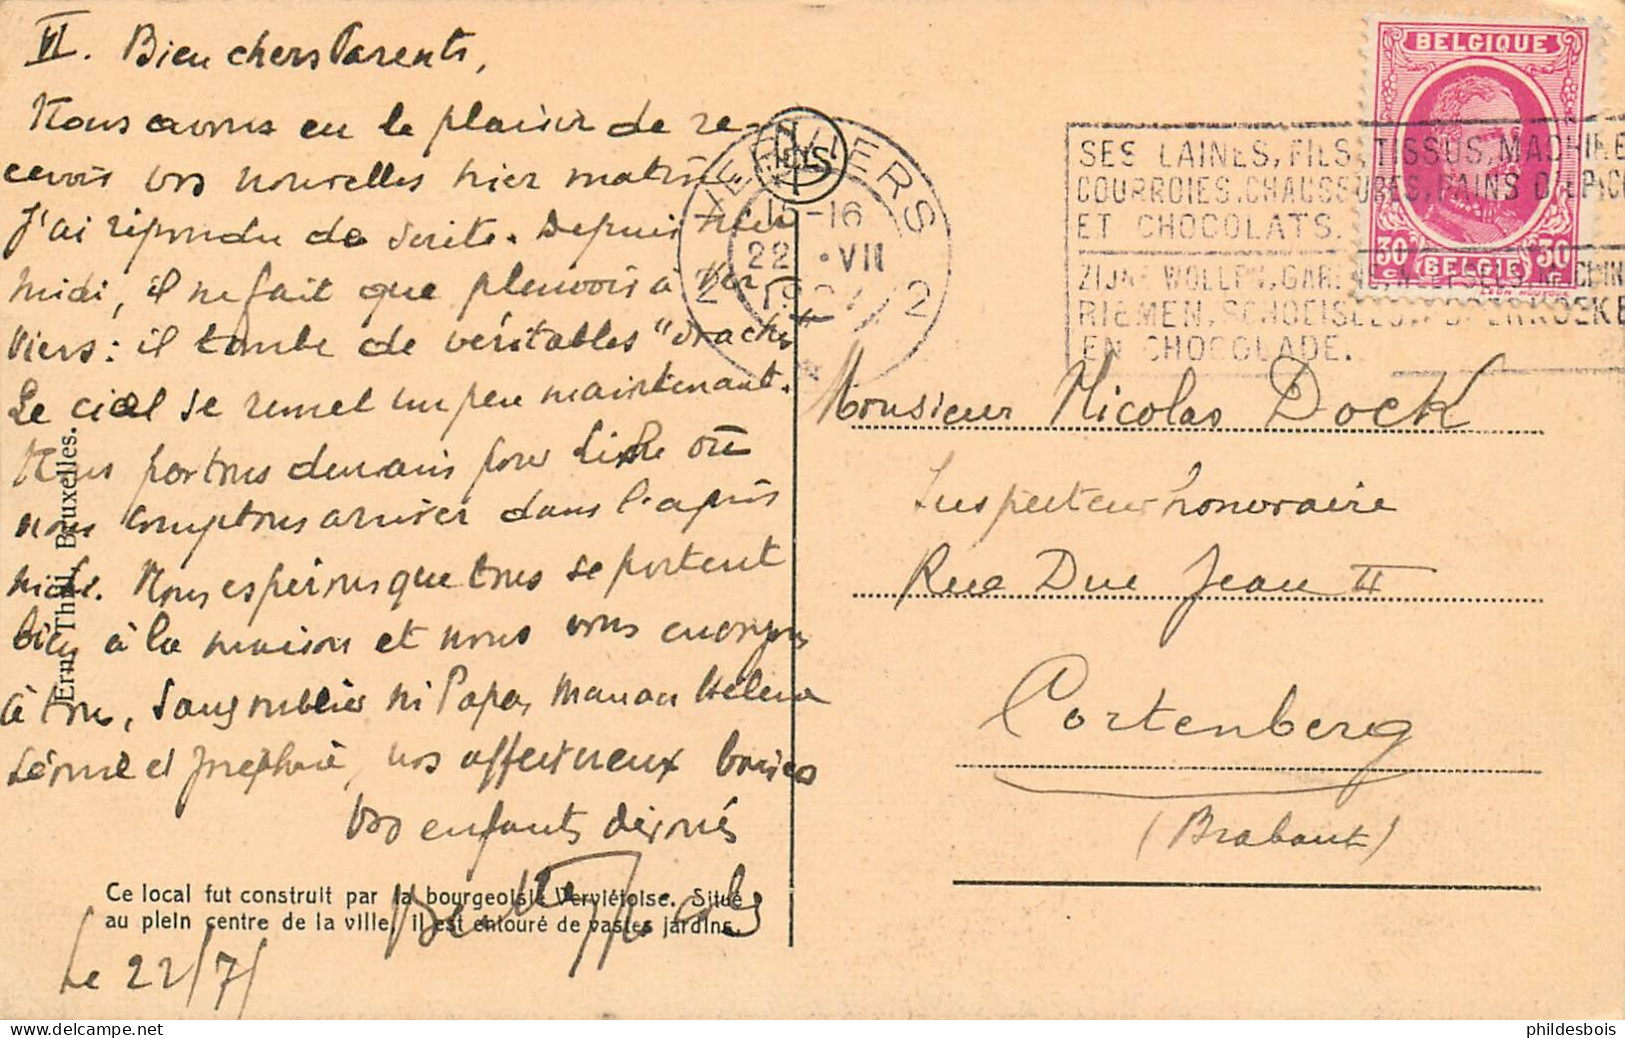 VI. Bien chers Parents,
Nous avons eu le plaisir de re-
cevoir vos nouvelles hier matin.
J'ai répondu de suite. Depuis hier
midi, il ne fait que pleuvoir à Ver-
viers: il tombe de véritables "draches"
Le ciel se remet un peu maintenant.
Nous partons demain pour Liège où
nous comptons arriver dans l'après
midi. Nous espérons que tous se portent
bien à la maison et nous vous envoyons
à tous, sans oublier ni Papa, Maman Helena
et Joséphine, nos affectueux baisers
Vos enfants dévoués
Le 22/7/
Ce local fut construit par la bourgeoisie Verviétoise. Situé
au plein centre de la ville, il est entouré de vastes jardins.
Ern. Thill, Bruxelles.
NELS
VERVIERS
15-16
22 . VII
2 2
SES LAINES, FILS, TISSUS, MACHINE
COURROIES, CHAUSSURES, PAINS D'EPIC
ET CHOCOLATS.
ZIJNE WOLLEN, GARENS, WEEFSELS, MACHIN
RIEMEN, SCHOEISEL, PEPERKOEKE
EN CHOCOLADE.
BELGIQUE
30 C 30 C
BELGIË
Monsieur Nicolas Dock
Inspecteur honoraire
Rue Duc Jean II
Cortenberg
(Brabant)
phildesbois